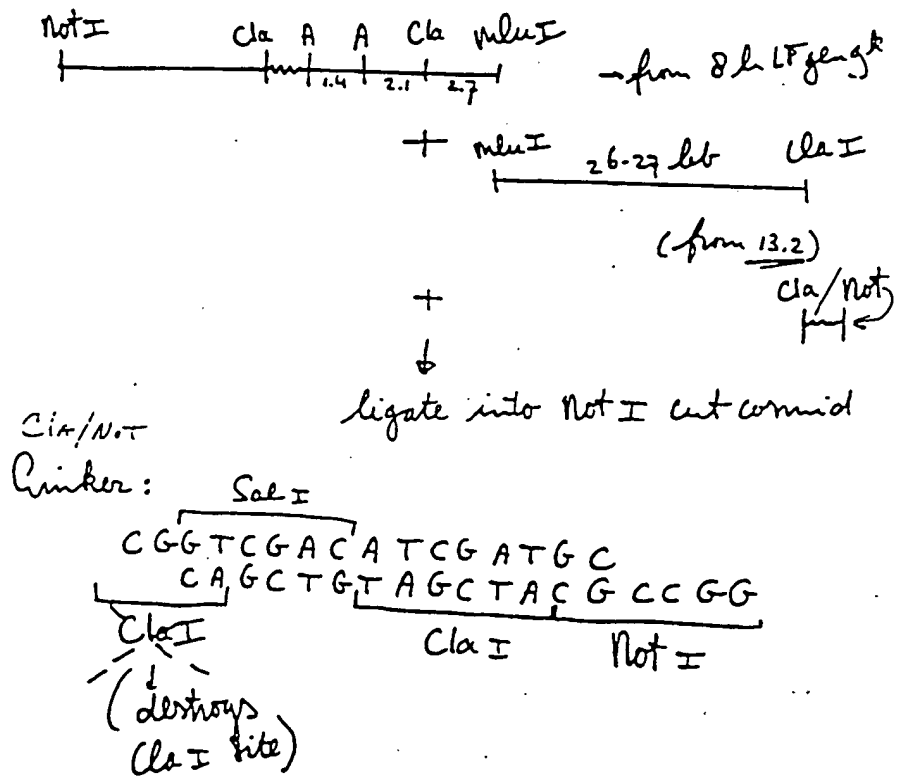 Not I Cla A A Cla Mlu I
1.4 2.1 2.7
→ from
+ Mlu I 26-27 kb Cla I
(from 13.2)
Cla/Not
+
↓
ligate into Not I cut cosmid
Cla/Not
Linker:
Sal I
C G G T C G A C A T C G A T G C
C A G C T G T A G C T A C G C C G G
Cla I Cla I Not I
(destroys
Cla I site)